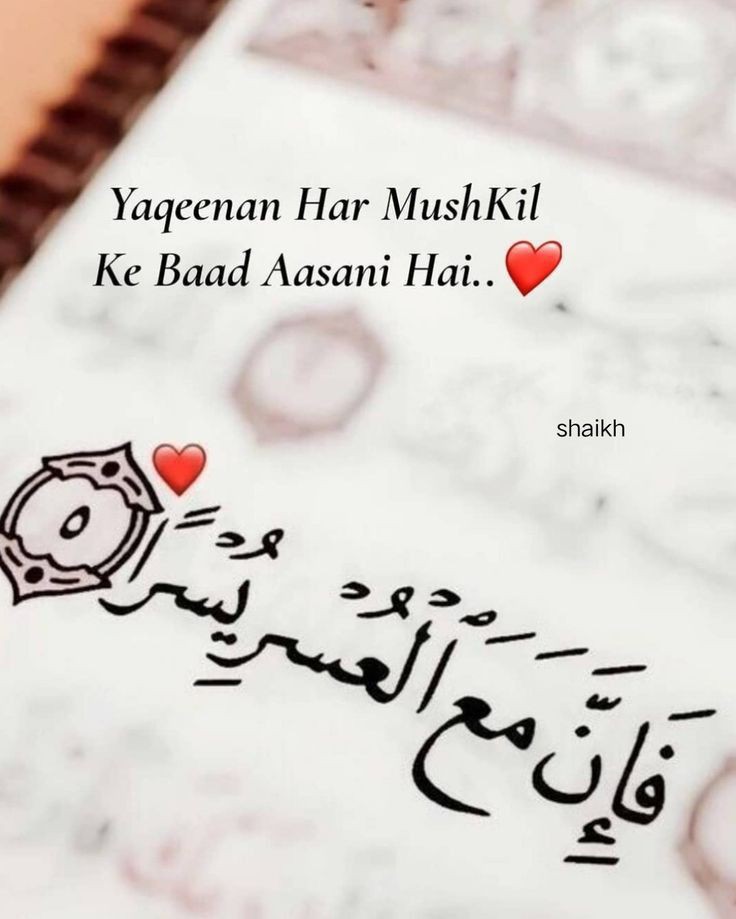 Yaqeenan Har MushKil
Ke Baad Aasani Hai..❤️
shaikh
فَإِنَّ مَعَ الْعُسْرِ يُسْرًا ٥